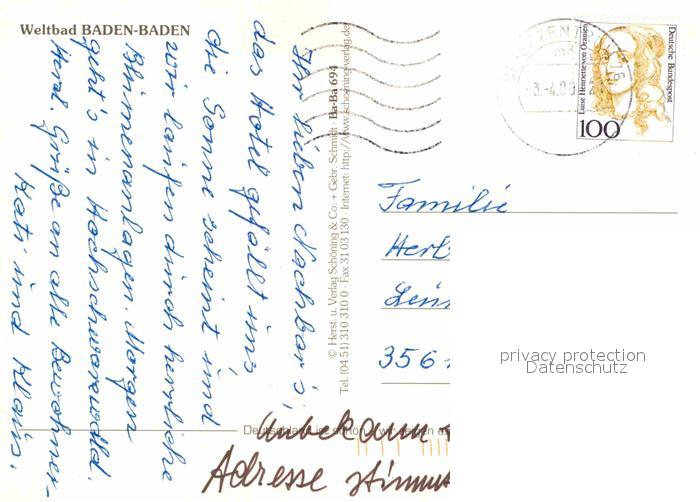 Weltbad BADEN-BADEN
Ihr lieben Nachbar's,
das Hotel gefällt uns
die Sonne scheint und
wir laufen durch herrliche
Blumenanlagen. Morgen
geht's in Hochschwarzwald.
Herzl. Grüße an alle Bewohner-
Kati und Klaus.
© Herst. u. Verlag Schöning & Co. + Gebr. Schmidt · Ba-Ba 694
Tel. (04 51) 310 310 0 · Fax 31 03 130 · Internet: http://www.schoening-verlag.de
BRIEFZENTRUM
76
-3.-4.00
Luise Henriette von Oranien
Deutsche Bundespost
100
Familie
Herb
356
privacy protection
Datenschutz
Deutschland ist schön, wir zeigen es
unbekann
Adresse stimmt